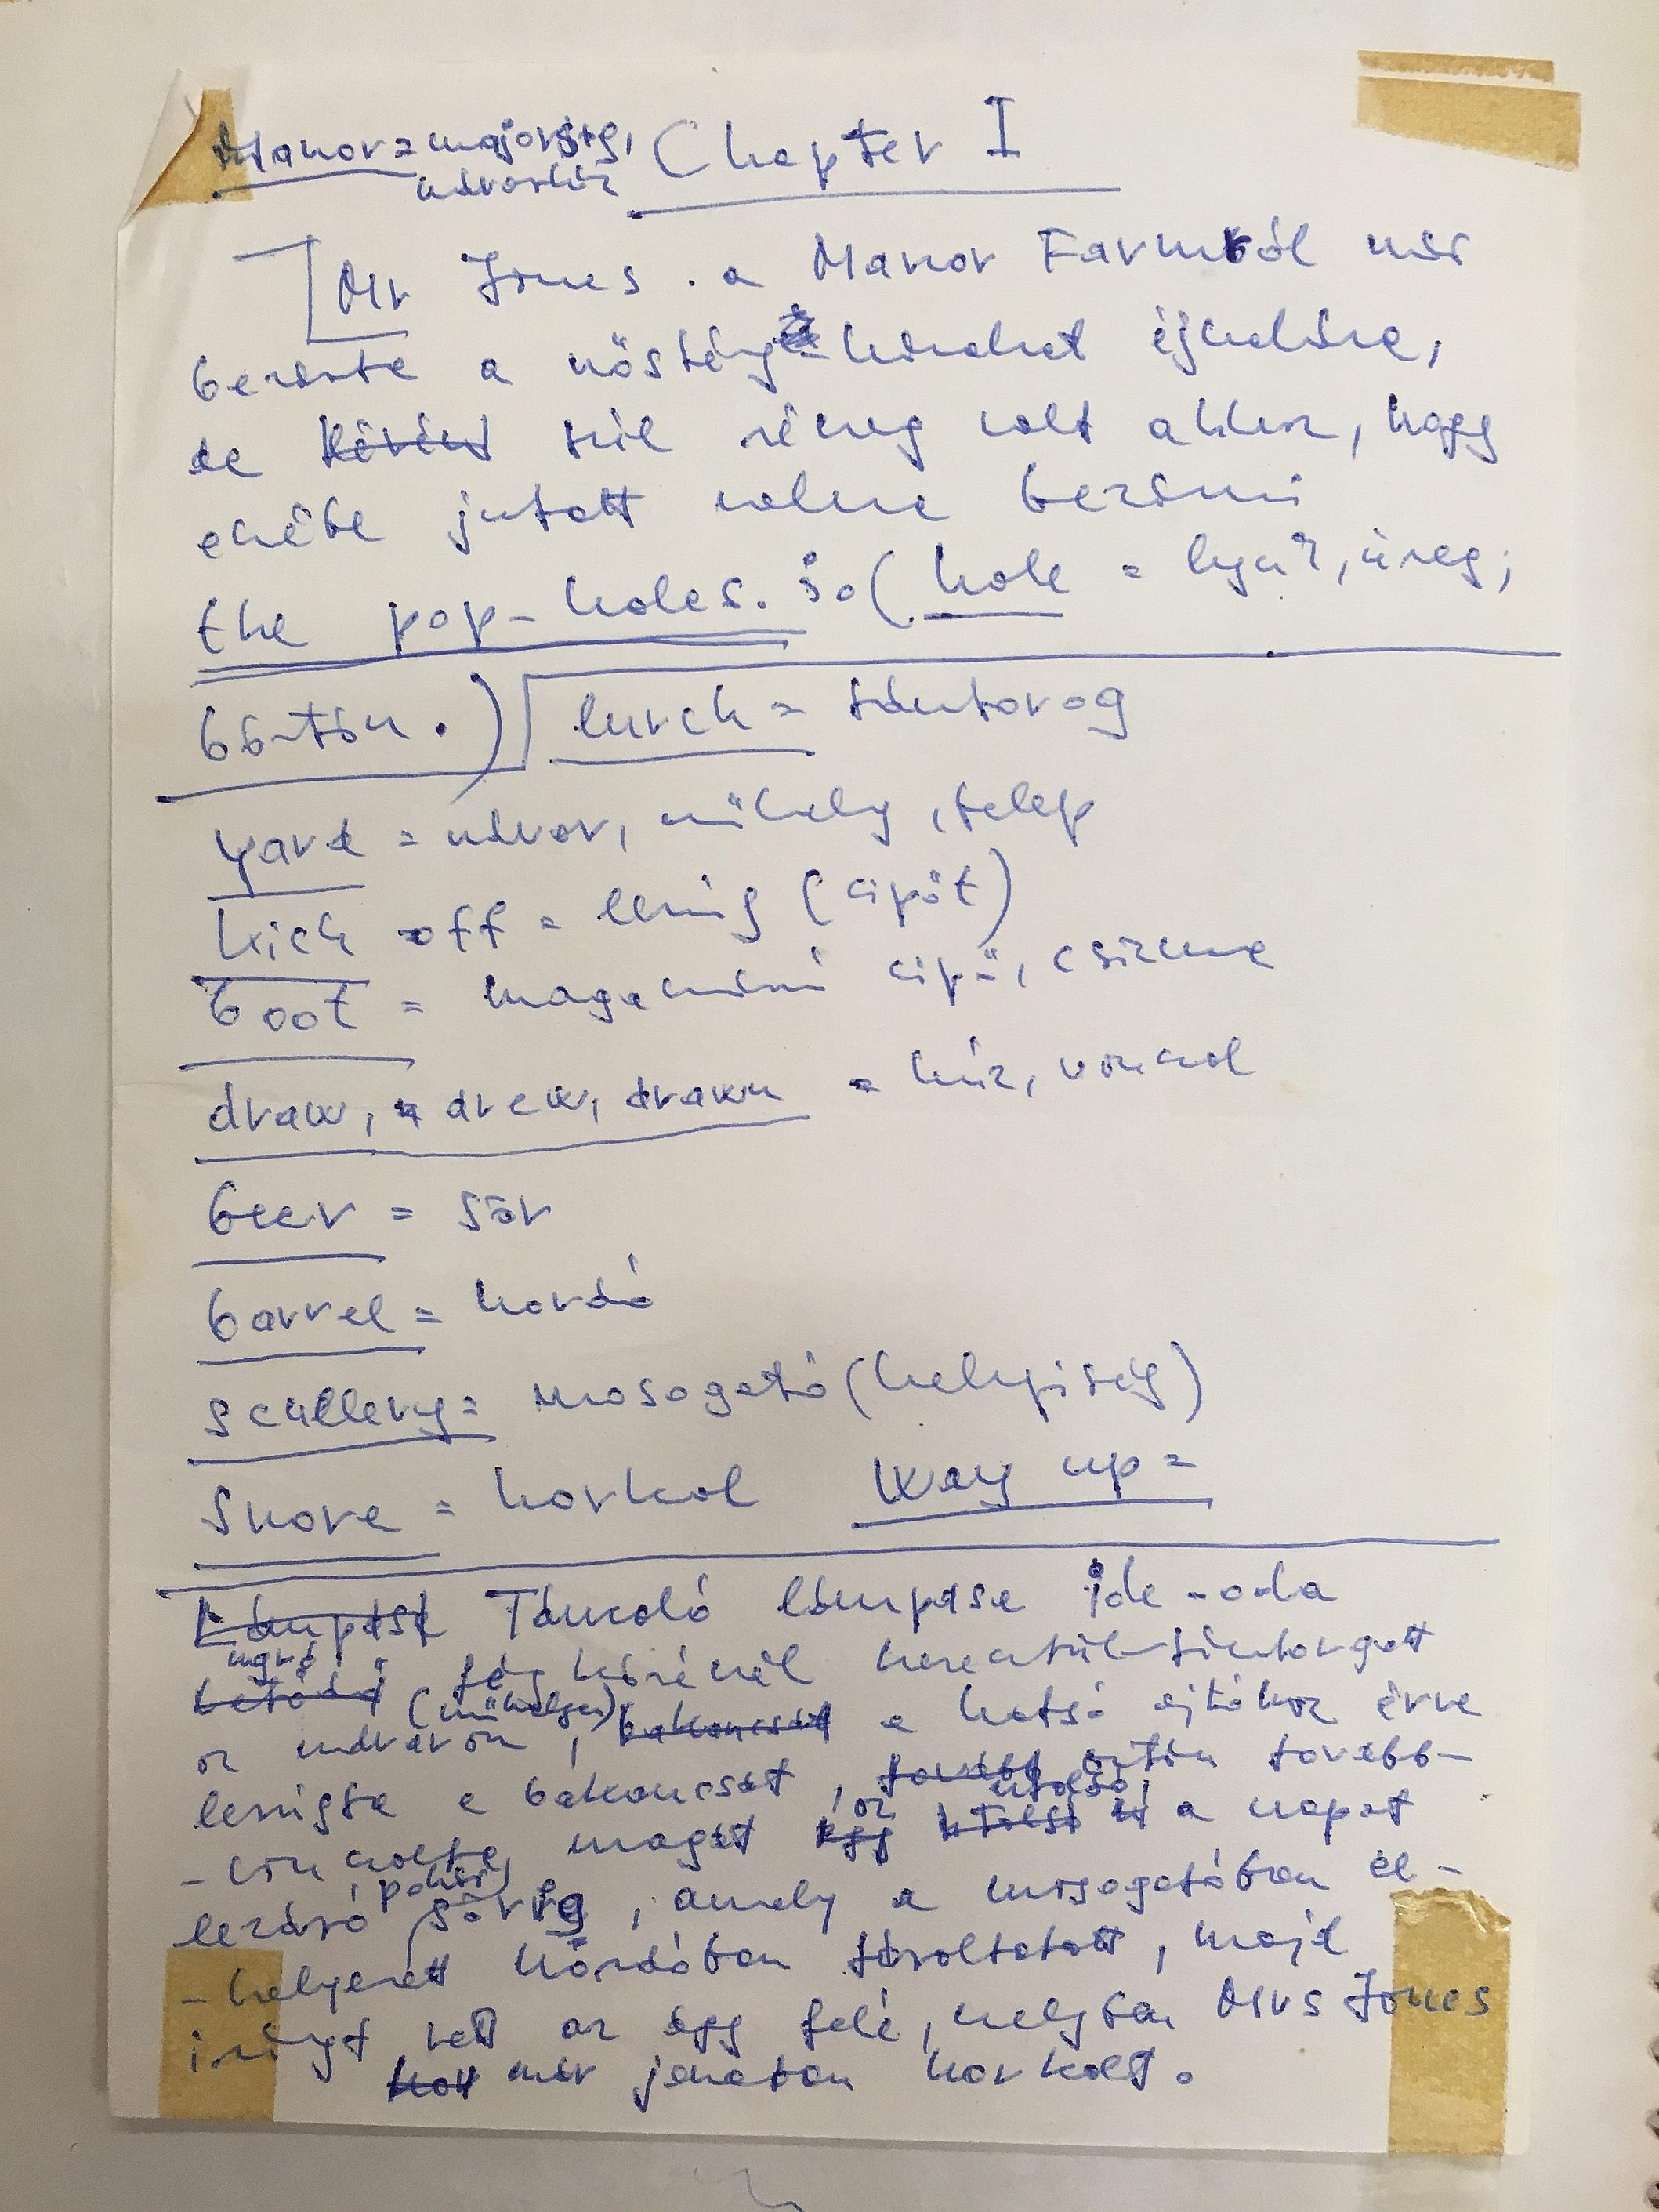 Manor = majorság, Chapter I
udvarház
Mr Jones a Manor Farmból már
bezárta a nőstény- kakat éjszakára,
de túl részeg volt ahhoz, hogy
eszébe jutott volna bezárni
the pop-holes. (hole = lyuk, üreg;
börtön.) lurch = tántorog
yard = udvar, műhely, telep
kick off = lerúg (cipőt)
boot = magasszárú cipő, csizma
draw, drew, drawn = húz, vonszol
beer = sör
barrel = hordó
scullery = mosogató (helyiség)
Snore = horkol Way up =
Lámpást Táncoló lámpása ide-oda
ugró
fénykörénél keresztül-tántorgott
(műhelyen)
az udvaron, bakancsát a hátsó ajtóhoz érve
lerúgta a bakancsát, tovább aztán tovább-
az utolsó,
-vonszolta magát egy utolsó a napot
pohár
lezáró sörig, amely a mosogatóban el-
-helyezett hordóban tároltatott, majd
irányt vett az ágy felé, melyben Mrs Jones
már javában horkolt.